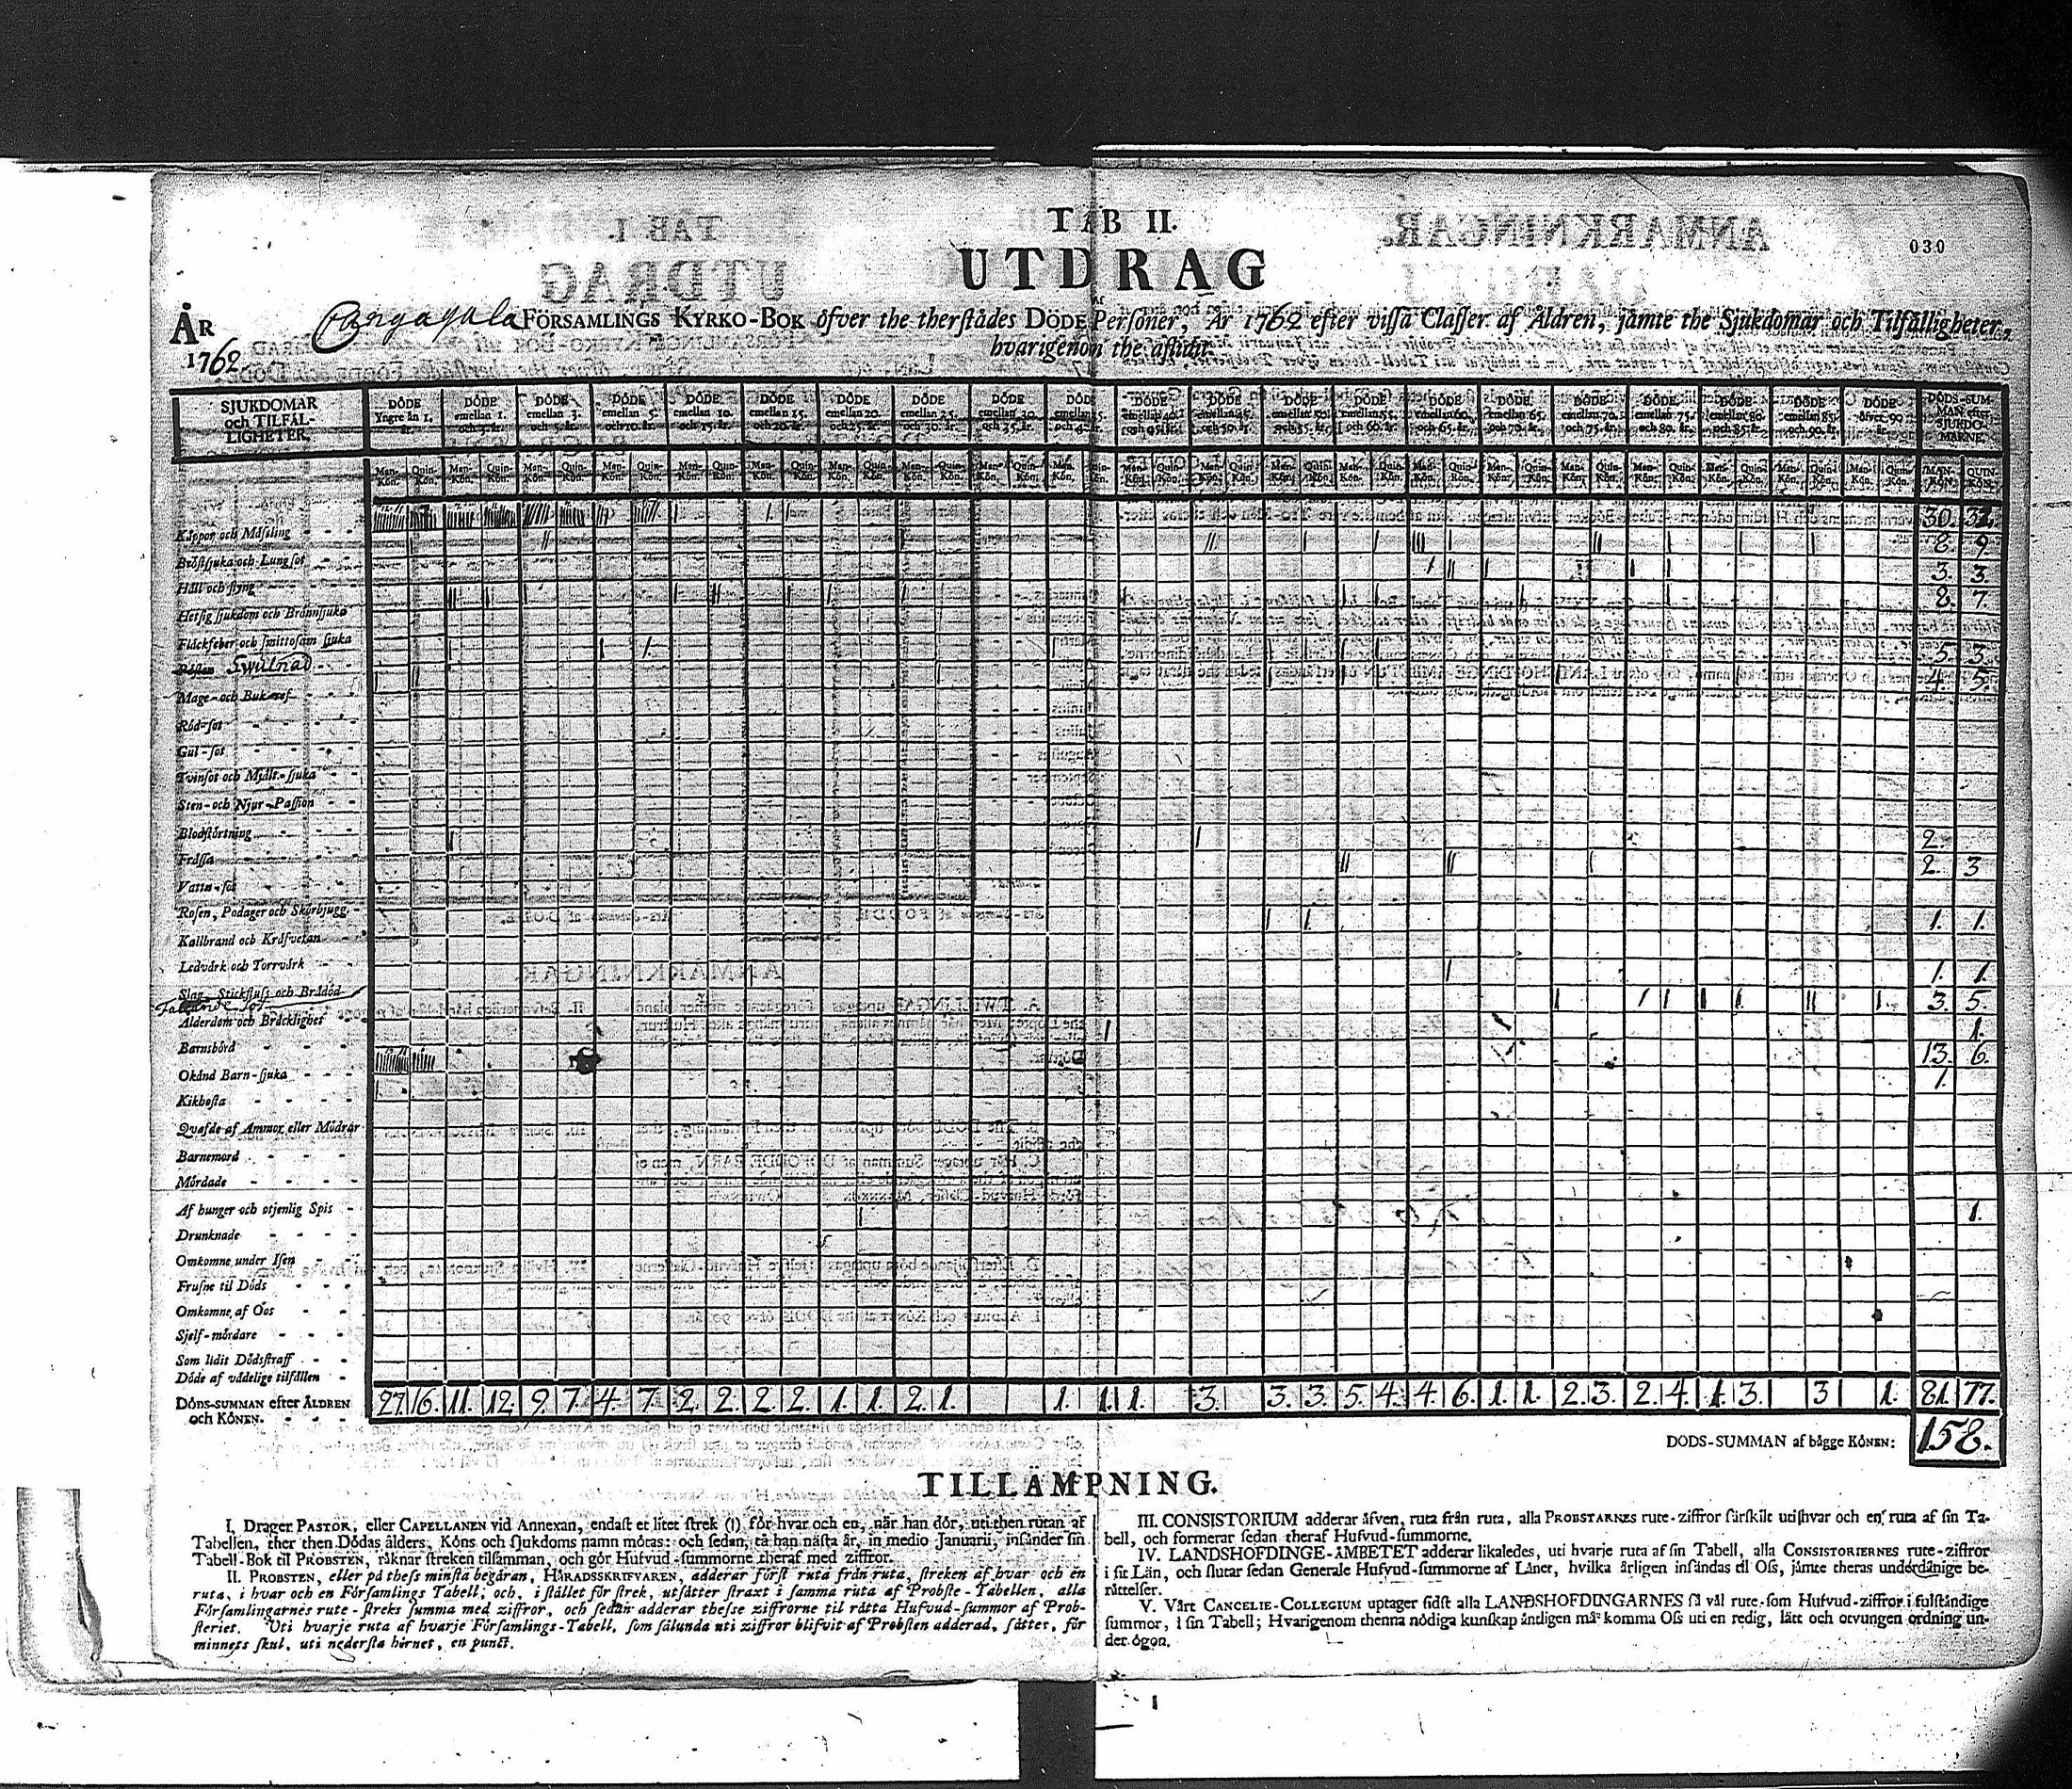 TAB II.
030
UTDRAG
AF
ÅR
1762
FÖRSAMLINGS KYRKO-BOK öfver the therstädes DÖDE Personer, År 1762 efter vissa Classer af Åldren, jämte the Sjukdomar och Tilfälligheter,
hvarigenom the aflidit.
SJUKDOMAR och TILFÄLLIGHETER.
DÖDE Yngre än 1. år.
DÖDE emellan 1. och 3. år.
DÖDE emellan 3. och 5. år.
DÖDE emellan 5. och 10. år.
DÖDE emellan 10. och 15. år.
DÖDE emellan 15. och 20. år.
DÖDE emellan 20. och 25. år.
DÖDE emellan 25. och 30. år.
DÖDE emellan 30. och 35. år.
DÖDE
DÖDE
DÖDE
DÖDE emellan 50. och 55. år.
DÖDE emellan 55. och 60. år.
DÖDE emellan 60. och 65. år.
DÖDE emellan 65. och 70. år.
DÖDE emellan 70. och 75. år.
DÖDE emellan 75. och 80. år.
DÖDE emellan 80. och 85. år.
DÖDE emellan 85. och 90. år.
DÖDE öfver 90 år.
DÖDS-SUMMAN efter SJUKDOMARNE.
Man-Kön. Quin-Kön.
Koppor och Mässling 30. 31.
Bröstsjuka och Lungsot 8. 9.
Håll och styng 3. 3.
Hetsig sjukdom och Brännsjuka 8. 7.
Fläckfeber och smittosam sjuka
Swulnad 5. 3.
Mage- och Bukref 4. 5.
Röd-sot
Gul-sot
Tvinsot och Mjält-sjuka
Sten- och Njur-Passion
Blodstörtning
Frässa 2.
Vattu-sot 2. 3
Rosen, Podager och Skörbjugg
Kallbrand och Kräfvetan 1. 1.
Ledvärk och Torrvärk
Slag, Stickfluss och Brådöd 1. 1.
Ålderdom och Bräcklighet 3. 5.
Barnsbörd 1.
Okänd Barn-sjuka 13. 6.
Kikhosta 1.
Qvafde af Ammor eller Mödrar
Barnemord
Mördade
Af hunger och otjenlig Spis
Drunknade 1.
Omkomne under Isen
Frusne til Döds
Omkomne af Oos
Sjelf-mördare
Som lidit Dödsstraff
Döde af vådelige tilfällen
DÖDS-SUMMAN efter ÅLDREN och KÖNEN. 27. 16. 11. 12 9. 7. 4. 7. 2. 2. 2. 2. 1. 1. 2. 1. 1. 1. 1. 3. 3. 3. 5. 4. 4. 6. 1. 1. 2. 3. 2. 4. 1. 3. 3 1. 81. 77.
DÖDS-SUMMAN af bägge KÖNEN: 158.
TILLÄMPNING.
I. Drager PASTOR, eller CAPELLANEN vid Annexan, endast et litet strek (I) för hvar och en, när han dör, uti then rutan af
Tabellen, ther then Dödas ålders, Köns och sjukdoms namn mötas: och sedan, tå han nästa år, in medio Januarii, insänder sin
Tabell-Bok til PROBSTEN, räknar streken tilsamman, och gör Hufvud-summorne theraf med ziffror.
II. PROBSTEN, eller på thess minsta begäran, HÄRADSSKRIFVAREN, adderar först ruta från ruta, streken af hvar och en
ruta, i hvar och en Församlings Tabell; och, i stället för strek, utsätter straxt i samma ruta af Probste-Tabellen, alla
Församlingarnes rute-streks summa med ziffror, och sedan adderar thesse ziffrorne til rätta Hufvud-summor af Prob-
steriet. Uti hvarje ruta af hvarje Församlings-Tabell, som sålunda uti ziffror blifvit af Probsten adderad, sättes, för
minness skul, uti nedersta hörnet, en punct.
III. CONSISTORIUM adderar äfven, ruta från ruta, alla PROBSTARNES rute-ziffror särskilt uti hvar och en ruta af sin Ta-
bell, och formerar sedan theraf Hufvud-summorne.
IV. LANDSHÖFDINGE-ÄMBETET adderar likaledes, uti hvarje ruta af sin Tabell, alla CONSISTORIERNES rute-ziffror
i sit Län, och slutar sedan Generale Hufvud-summorne af Länet, hvilka årligen insändas til Oss, jämte theras underdånige be-
rättelser.
V. Vårt CANCELIE-COLLEGIUM uptager sidst alla LANDSHÖFDINGARNES så väl rute- som Hufvud-ziffror i fulständige
summor, i sin Tabell; Hvarigenom thenna nödiga kunskap äntligen må komma Oss uti en redig, lätt och otvungen ordning un-
der ögon.